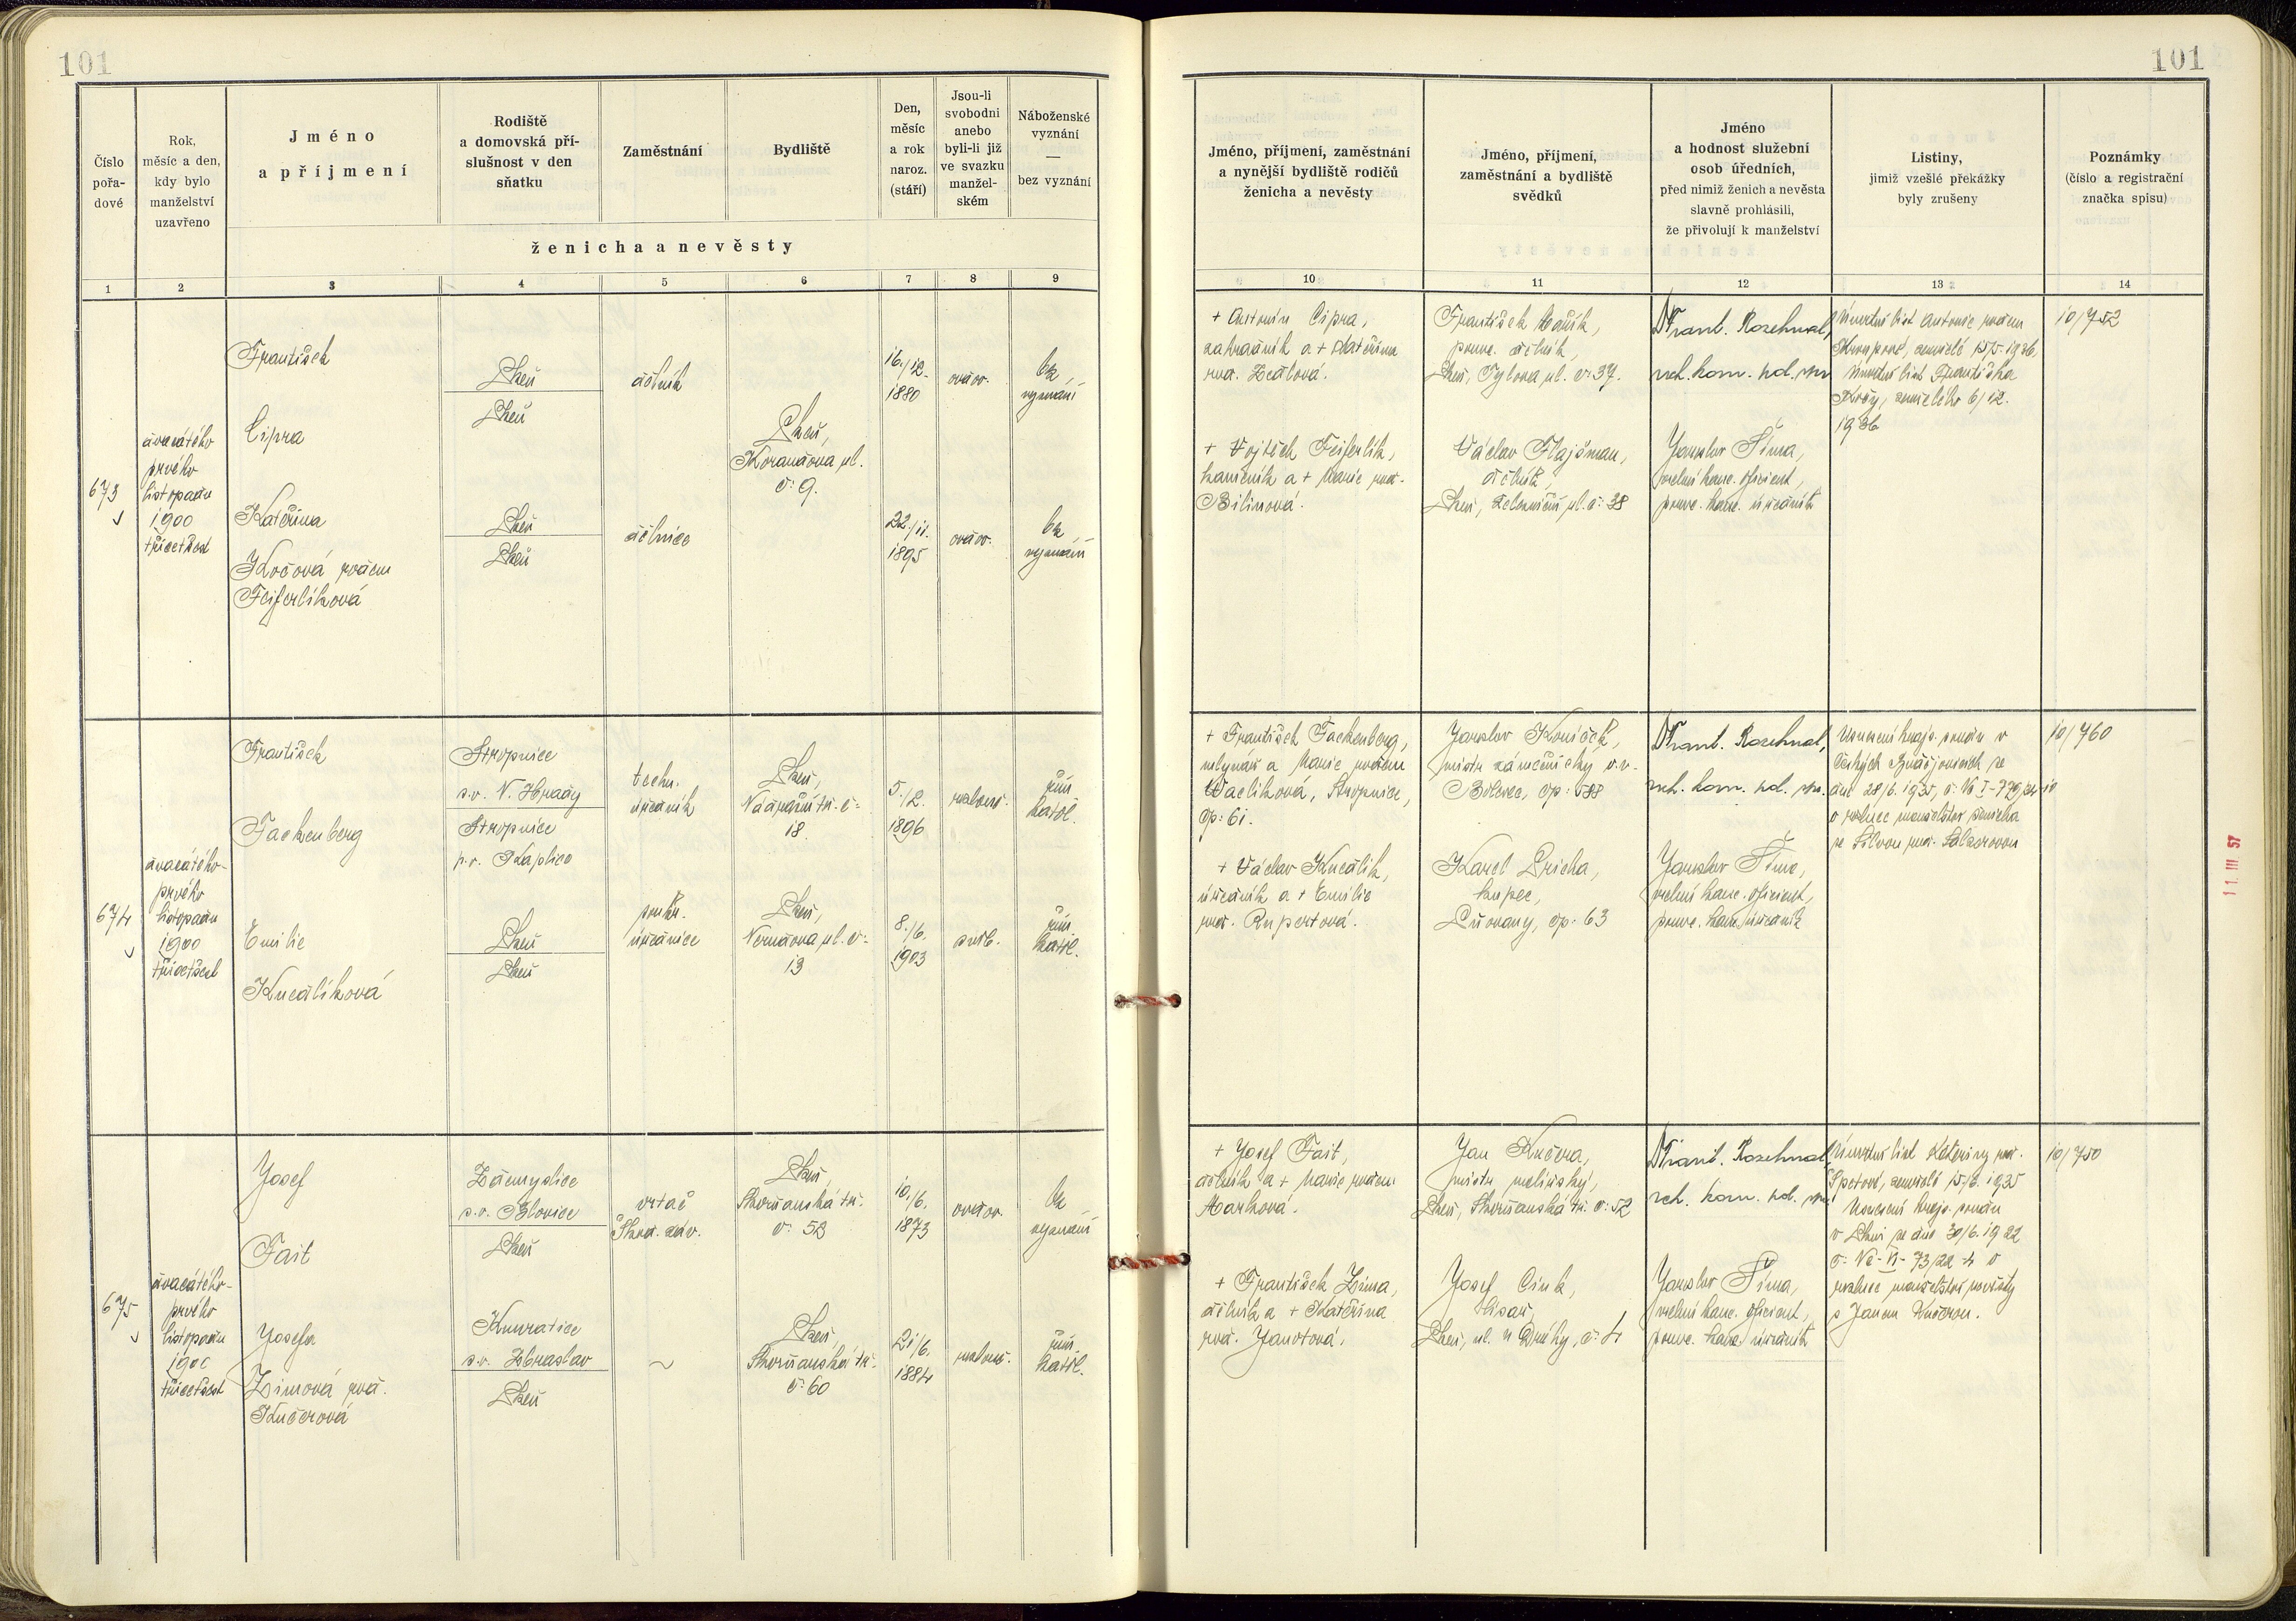 101
101
Číslo
pořa-
dové
Rok,
měsíc a den,
kdy bylo
manželství
uzavřeno
Jméno
a příjmení
Rodiště
a domovská pří-
slušnost v den
sňatku
Zaměstnání
Bydliště
Den,
měsíc
a rok
naroz.
(stáří)
Jsou-li
svobodni
anebo
byli-li již
ve svazku
manžel-
ském
Náboženské
vyznání
—
bez vyznání
ženicha a nevěsty
Jméno, příjmení, zaměstnání
a nynější bydliště rodičů
ženicha a nevěsty
Jméno, příjmení,
zaměstnání a bydliště
svědků
Jméno
a hodnost služební
osob úředních,
před nimiž ženich a nevěsta
slavně prohlásili,
že přivolují k manželství
Listiny,
jimiž vzešlé překážky
byly zrušeny
Poznámky
(číslo a registrační
značka spisu)
1 2 3 4 5 6 7 8 9 10 11 12 13 14
673
dvacátého
prvého
listopadu
1900
třicetšest
František
Cipra
Plzeň
Plzeň
dělník
Plzeň,
Korandova ul.
č. 9.
16./12.
1880
ovdov.
bez
vyznání
Kateřina
Kočová rozen
Feiferlíková
Plzeň
Plzeň
dělnice
22./11.
1895
ovdov.
bez
vyznání
+ Antonín Cipra,
zahradník a + Kateřina
roz.
+ Vojtěch Feiferlík,
kameník a + Marie roz.
Bílinová.
František
dělník,
Plzeň, Tylova ul. č. 37.
Václav Flajšman,
dělník,
Plzeň, Železniční ul. č. 38
Frant. Rozehnal,
rch. kom. pol. spr.
Jaroslav Šíma,
kanc. oficient,
kanc. úředník
Úmrtní list Antonie rozen
zemřelé 15/5. 1936.
Úmrtní list Františka
zemřelého 6/12.
1936
10/752
674
dvacátého-
prvého
listopadu
1900
třicetšest
František
Fackenberg
Stropnice
s.o. N. Hrady
Stropnice
p.o. Kaplice
techn.
úředník
Plzeň,
Nádražní tř. č.
18.
5./2.
1896
rozlouč.
řím.
katol.
Emilie
Knedlíková
Plzeň
Plzeň
soukr.
úřednice
Plzeň,
Nerudova ul. č.
13
8./6.
1903
svob.
řím.
katol.
+ František Fackenberg,
mlynář a Marie rozen
Stropnice,
čp. 61.
+ Václav Knedlík,
úředník a + Emilie
roz. Rupertová.
Jaroslav Koníček,
mistr zámečnický v.v.
Bolevec, čp. 588
Karel
kupec,
čp. 63
Frant. Rozehnal,
rch. kom. pol. spr.
Jaroslav Šíma,
kanc. oficient,
kanc. úředník
Usnesení krajs. soudu v
Českých Budějovicích ze
dne 28/6. 1935,
o rozluce manželství ženicha
10/760
675
dvacátého-
prvého
listopadu
190
třicetšest
Josef
Fait
Zdemyslice
s.o. Blovice
Plzeň
vrtač
Škod. záv.
Plzeň,
Skvrňanská tř.
č. 52
10./6.
1873
ovdov.
bez
vyznání
Josefa
Zimová roz.
Kučerová
Kunratice
s.o. Zbraslav
Plzeň
~
Plzeň,
Skvrňanská tř.
č. 60
21/6.
1884
rozlouč.
řím.
katol.
+ Josef Fait,
dělník a + Marie rozen
Marková.
+ František Zima,
dělník a + Kateřina
roz. Janotová.
Jan Kučera,
mistr
Plzeň, Skvrňanská tř. č. 52
Josef Cink,
Plzeň, ul. U Dráhy, č. 4
Frant. Rozehnal,
rch. kom. pol. spr.
Jaroslav Šíma,
kanc. oficient,
kanc. úředník
Úmrtní list Kateřiny roz.
zemřelé 15/6. 1935
Usnesení krajs. soudu
v Plzni ze dne 30/6. 1922
rozluce manželství nevěsty
s Janem Kučerou.
10/750
11 III 57